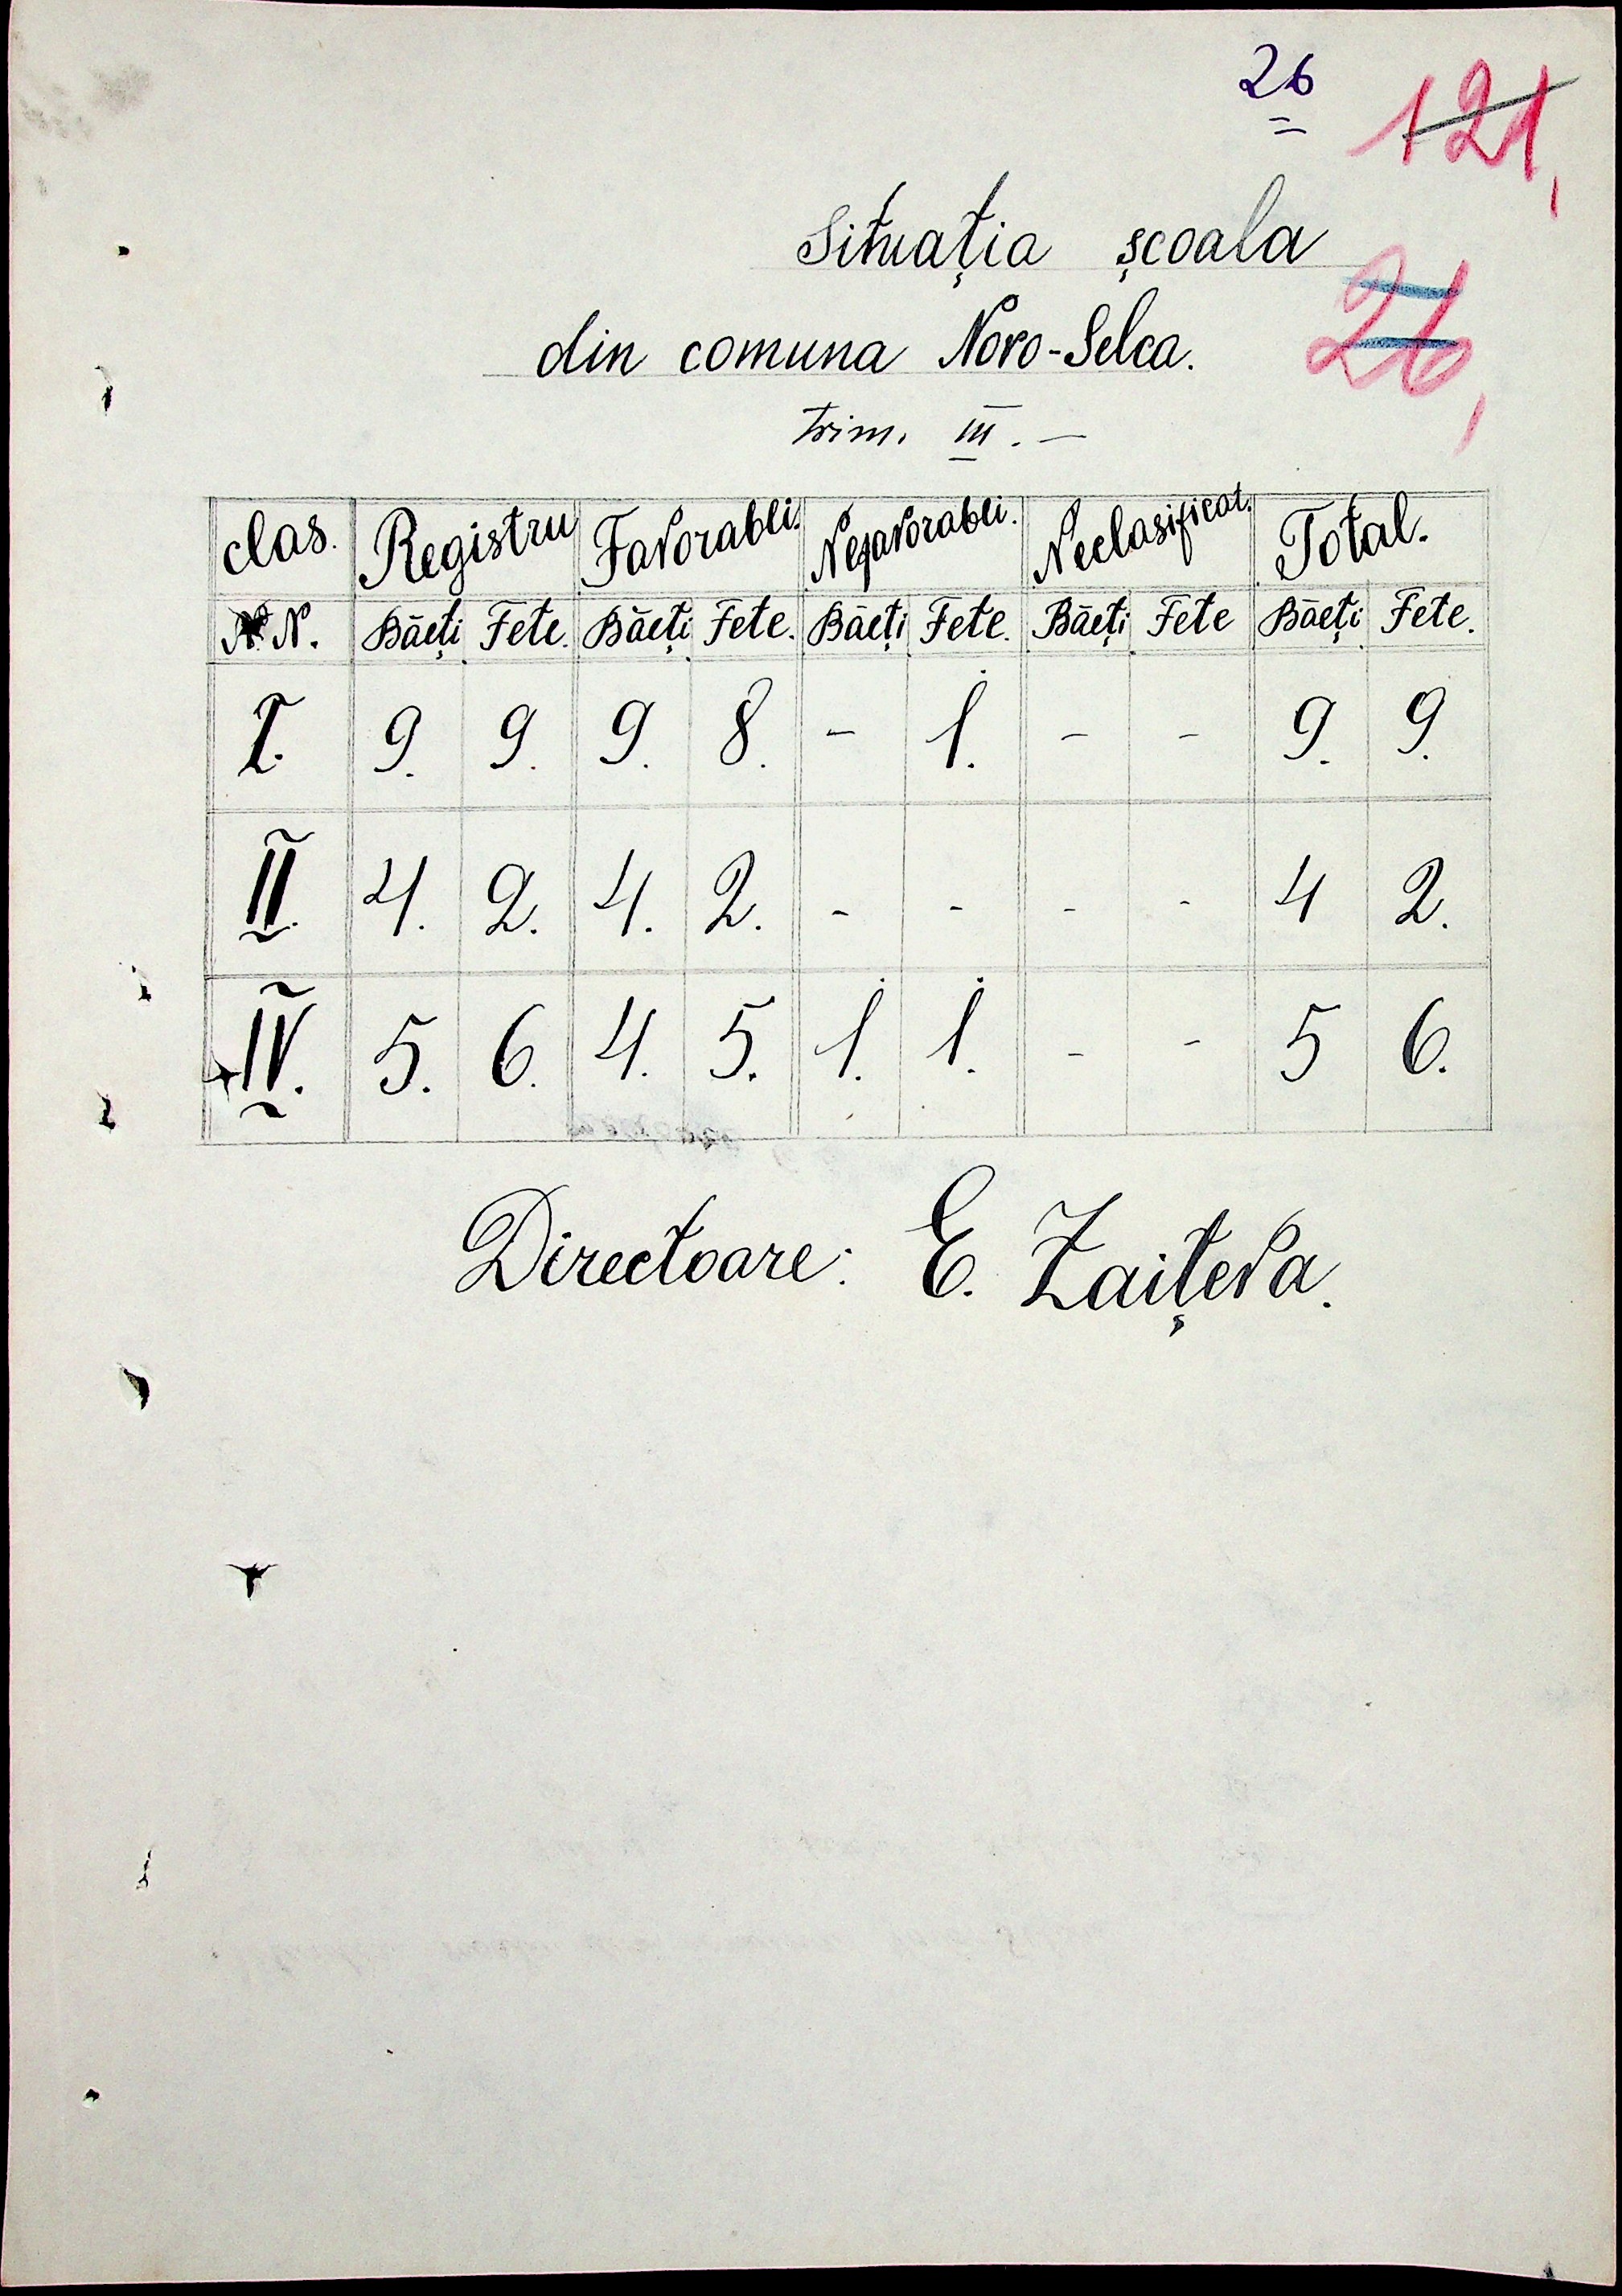 26
121,
Situația școala
26,
din comuna Novo-Selca.
trim. III. —
clas. Registru Favorabli. Nefavorabli. Neclasificat. Total.
N. Băeți Fete. Băeți Fete. Băeți Fete. Băeți Fete Băeți Fete.
I. 9. 9. 9. 8. - 1. - - 9. 9.
II. 4. 2. 4. 2. - - - - 4 2.
IV. 5. 6. 4. 5. 1. 1. - - 5 6.
Directoare: E. Zaițeva.